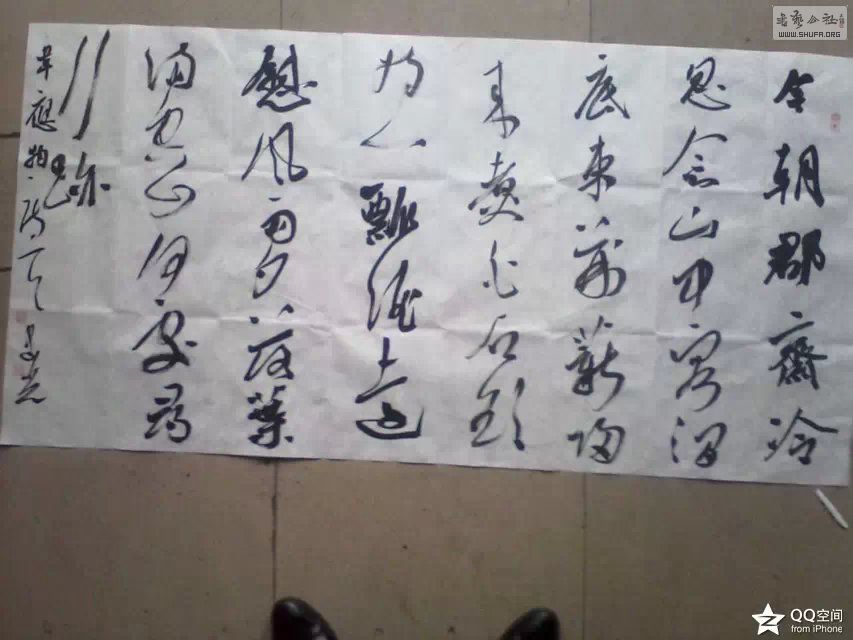 今朝郡齋冷
思念山中客澗
底束荆薪歸
來煮白石欲
持一瓢酒遠
慰風雨夕落葉
滿空山何處尋
行跡
韋應物詩一首
書藝公社
WWW.SHUFA.ORG
QQ空间
from iPhone